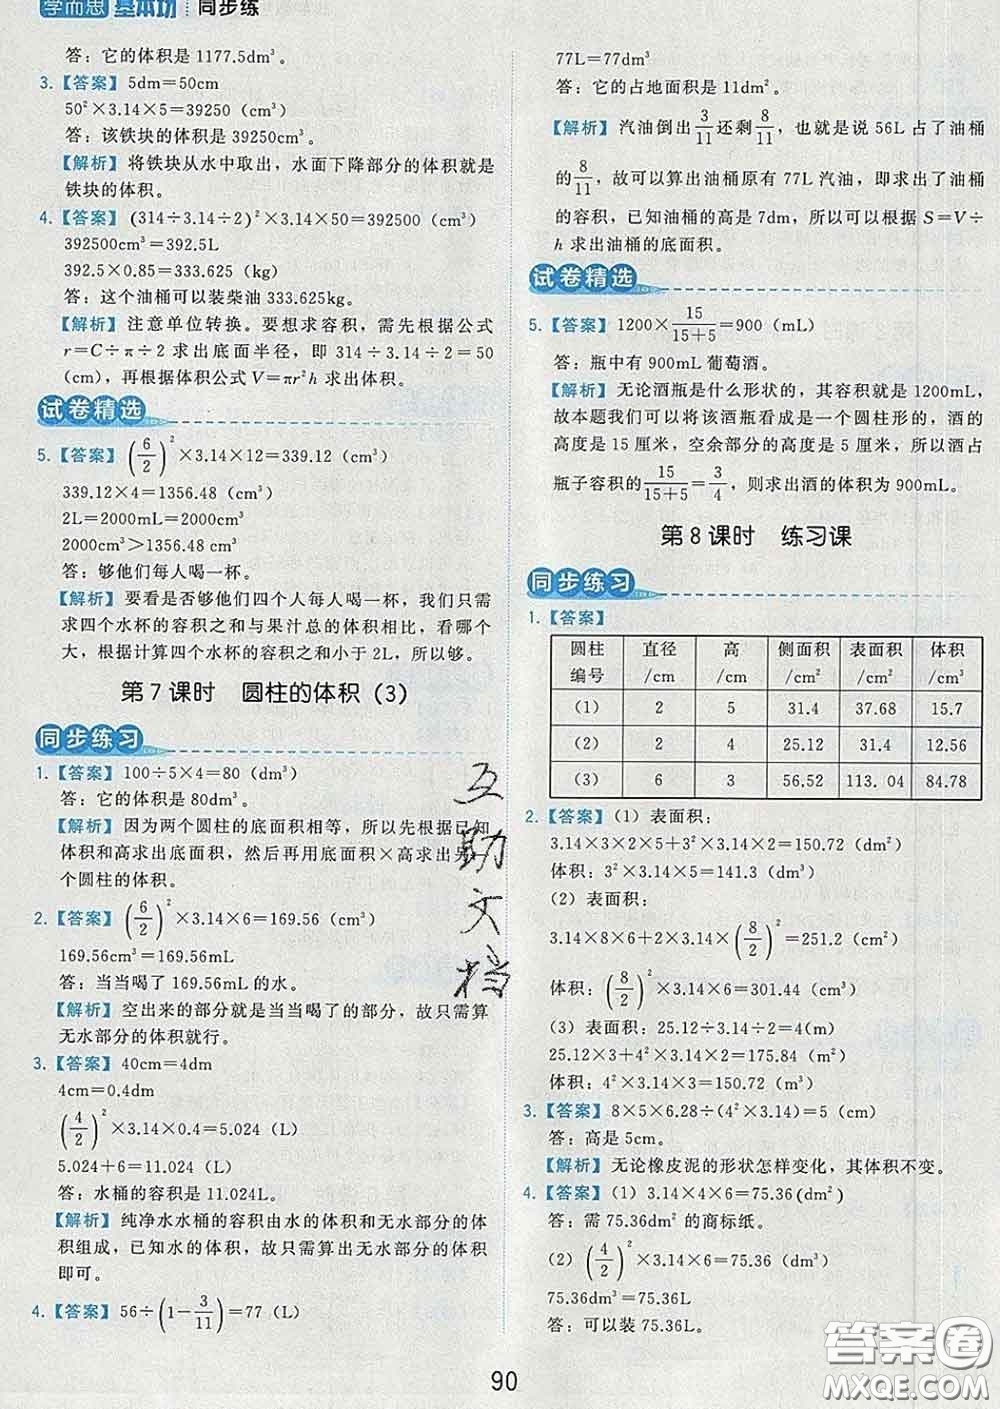 学而思 基本功 同步练
答：它的体积是 1177.5dm³。
3.【答案】5dm＝50cm
50²×3.14×5＝39250（cm³）
答：该铁块的体积是 39250cm³。
【解析】将铁块从水中取出，水面下降部分的体积就是
铁块的体积。
4.【答案】(314÷3.14÷2)²×3.14×50＝392500（cm³）
392500cm³＝392.5L
392.5×0.85＝333.625（kg）
答：这个油桶可以装柴油 333.625kg。
【解析】注意单位转换。要想求容积，需先根据公式
r＝C÷π÷2 求出底面半径，即 314÷3.14÷2＝50
（cm），再根据体积公式 V＝πr²h 求出体积。
试卷精选
5.【答案】(6/2)²×3.14×12＝339.12（cm³）
339.12×4＝1356.48（cm³）
2L＝2000mL＝2000cm³
2000cm³＞1356.48 cm³
答：够他们每人喝一杯。
【解析】要看是否够他们四个人每人喝一杯，我们只需
求四个水杯的容积之和与果汁总的体积相比，看哪个
大，根据计算四个水杯的容积之和小于 2L，所以够。
第 7 课时 圆柱的体积（3）
同步练习
1.【答案】100÷5×4＝80（dm³）
答：它的体积是 80dm³。
【解析】因为两个圆柱的底面积相等，所以先根据已知
体积和高求出底面积，然后再用底面积×高求出另一
个圆柱的体积。
2.【答案】(6/2)²×3.14×6＝169.56（cm³）
169.56cm³＝169.56mL
答：当当喝了 169.56mL 的水。
【解析】空出来的部分就是当当喝了的部分，故只需算
无水部分的体积就行。
3.【答案】40cm＝4dm
4cm＝0.4dm
(4/2)²×3.14×0.4＝5.024（L）
5.024＋6＝11.024（L）
答：水桶的容积是 11.024L。
【解析】纯净水水桶的容积由水的体积和无水部分的体
积组成，已知水的体积，故只需算出无水部分的体积
即可。
4.【答案】56÷(1－3/11)＝77（L）
77L＝77dm³
77÷7＝11（dm²）
答：它的占地面积是 11dm²。
【解析】汽油倒出3/11还剩8/11，也就是说 56L 占了油桶
的8/11，故可以算出油桶原有 77L 汽油，即求出了油桶
的容积，已知油桶的高是 7dm，所以可以根据 S＝V÷
h 求出油桶的底面积。
试卷精选
5.【答案】1200×15/(15＋5)＝900（mL）
答：瓶中有 900mL 葡萄酒。
【解析】无论酒瓶是什么形状的，其容积就是 1200mL，
故本题我们可以将该酒瓶看成是一个圆柱形的，酒的
高度是 15 厘米，空余部分的高度是 5 厘米，所以酒占
瓶子容积的15/(15＋5)＝3/4，则求出酒的体积为 900mL。
第 8 课时 练习课
同步练习
1.【答案】
圆柱编号 直径/cm 高/cm 侧面积/cm² 表面积/cm² 体积/cm³
（1） 2 5 31.4 37.68 15.7
（2） 2 4 25.12 31.4 12.56
（3） 6 3 56.52 113.04 84.78
2.【答案】（1）表面积：
3.14×3×2×5＋3²×3.14×2＝150.72（cm²）
体积：3²×3.14×5＝141.3（dm³）
（2）表面积：
3.14×8×6＋2×3.14×(8/2)²＝251.2（cm²）
体积：(8/2)²×3.14×6＝301.44（cm³）
（3）表面积：25.12÷3.14÷2＝4(m)
25.12×3＋4²×3.14×2＝175.84（m²）
体积：4²×3.14×3＝150.72（m³）
3.【答案】8×5×6.28÷(4²×3.14)＝5（cm）
答：高是 5cm。
【解析】无论橡皮泥的形状怎样变化，其体积不变。
4.【答案】（1）3.14×4×6＝75.36(dm²)
答：需 75.36dm² 的商标纸。
（2）(4/2)²×3.14×6＝75.36（dm³）
75.36dm³＝75.36L
答：可以装 75.36L。
互助文档
90
答案圈
MXQE.COM